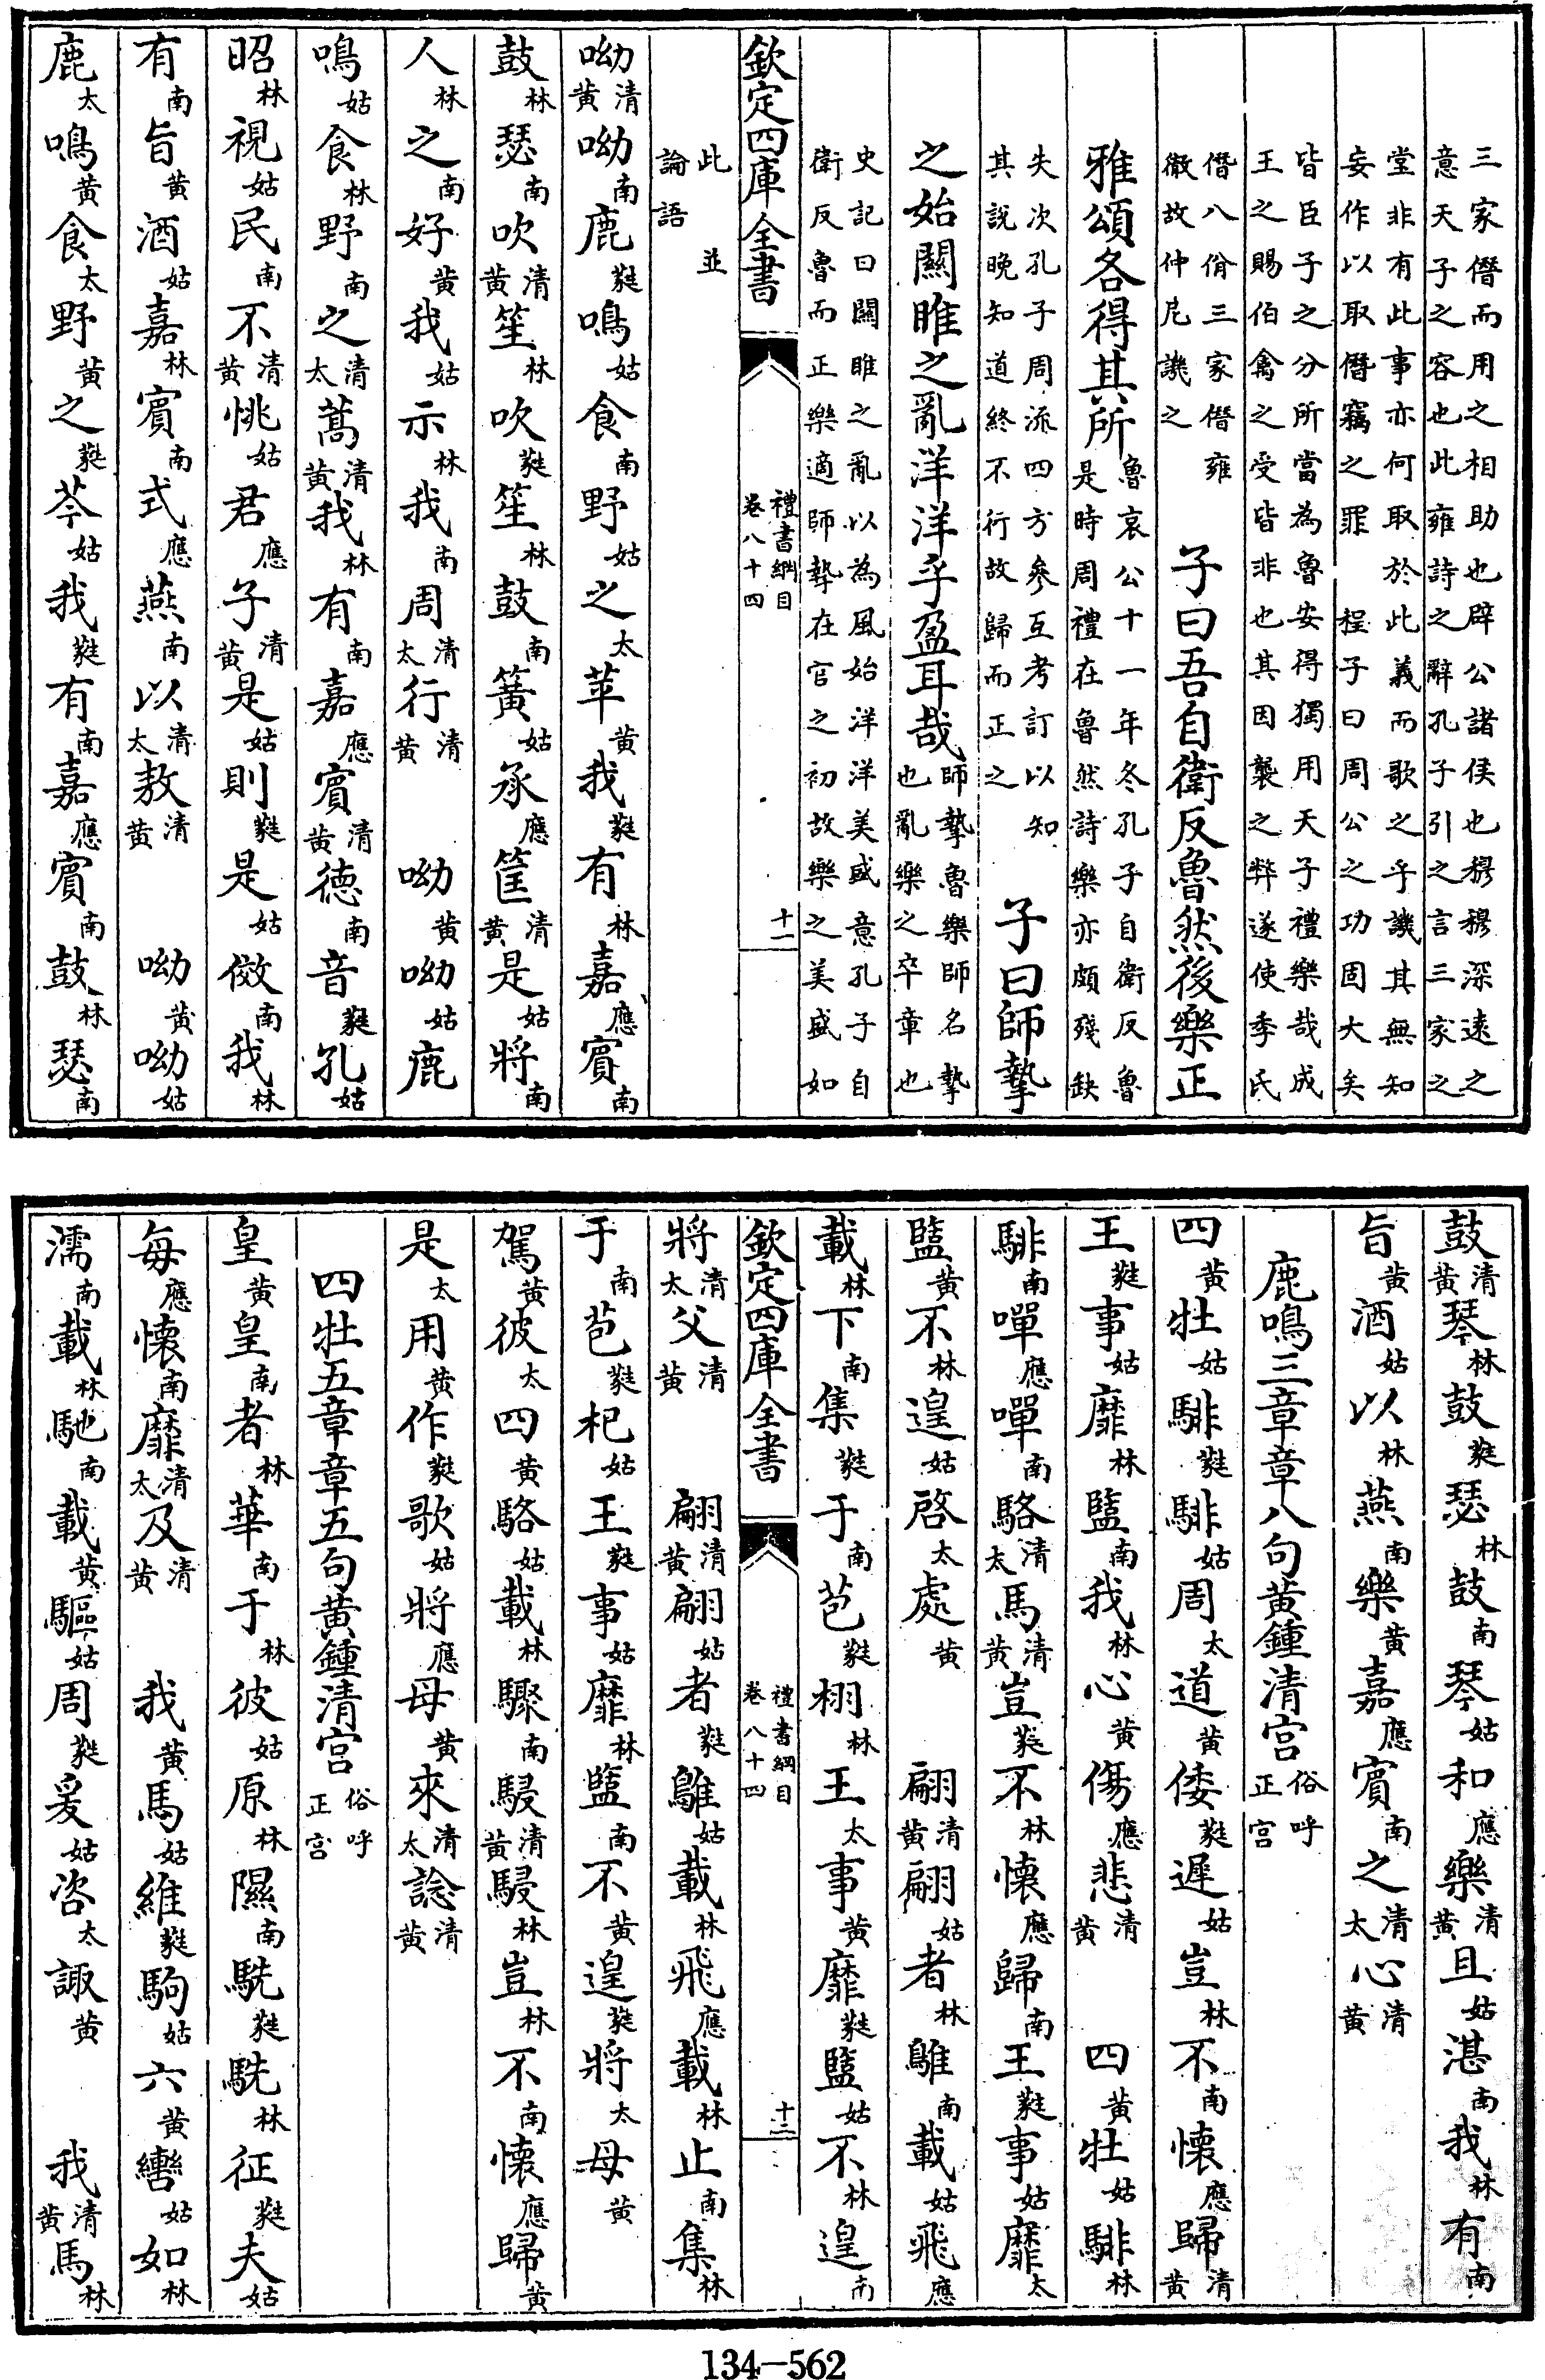 三家僭而用之相助也辟公諸侯也穆穆深遠之
意天子之容也此雍詩之辭孔子引之言三家之
堂非有此事亦何取於此義而歌之乎譏其無知
妄作以取僭竊之罪 程子曰周公之功固大矣
皆臣子之分所當為魯安得獨用天子禮樂哉成
王之賜伯禽之受皆非也其因襲之弊遂使季氏
僭八佾三家僭雍
徹故仲尼譏之 子曰吾自衛反魯然後樂正
雅頌各得其所魯哀公十一年冬孔子自衛反魯
是時周禮在魯然詩樂亦頗殘缺
失次孔子周流四方參互考訂以知
其說晚知道終不行故歸而正之 子曰師摯
之始關雎之亂洋洋乎盈耳哉師摯魯樂師名摯
也亂樂之卒章也
史記曰關雎之亂以為風始洋洋美盛意孔子自
衛反魯而正樂適師摯在官之初故樂之美盛如
欽定四庫全書 禮書綱目 卷八十四 十一
此 並
論語
呦清黃呦南鹿蕤鳴姑食南野姑之太苹黃我蕤有林嘉應賓南
鼓林瑟南吹清黃笙林吹蕤笙林鼓南簧姑承應筐清黃是姑將南
人林之南好黃我姑示林我南周清太行清黃 呦黃呦姑鹿
鳴姑食林野南之清太蒿清黃我林有南嘉應賓清黃德南音蕤孔姑
昭林視姑民南不清黃恌姑君應子清黃是姑則蕤是姑傚南我林
有南旨黃酒姑嘉林賓南式應燕南以清太敖清黃 呦黃呦姑
鹿太鳴黃食太野黃之蕤芩姑我蕤有南嘉應賓南鼓林瑟南
鼓清黃琴林鼓蕤瑟林鼓南琴姑和應樂清黃且姑湛南我林有南
旨黃酒姑以林燕南樂黃嘉應賓南之清太心清黃
鹿鳴三章章八句黃鍾清宮俗呼正宮
四黃牡姑騑蕤騑姑周太道黃倭蕤遲姑豈林不南懷應歸清黃
王蕤事姑靡林盬南我林心黃傷應悲清黃 四黃牡姑騑林
騑南嘽應嘽南駱清太馬清黃豈蕤不林懷應歸南王蕤事姑靡太
盬黃不林遑姑啓太處黃 翩清黃翩姑者林鵻南載姑飛應
載林下南集蕤于南苞蕤栩林王太事黃靡蕤盬姑不林遑南
欽定四庫全書 禮書綱目 卷八十四 十二
將清太父清黃 翩清黃翩姑者蕤鵻姑載林飛應載林止南集林
于南苞蕤杞姑王蕤事姑靡林盬南不黃遑蕤將太母黃
駕黃彼太四黃駱姑載林驟南駸清黃駸林豈林不南懷應歸黃
是太用黃作蕤歌姑將應母黃來清太諗清黃
四牡五章章五句黃鍾清宮俗呼正宮
皇黃皇南者林華南于林彼姑原林隰南駪蕤駪林征蕤夫姑
每應懷南靡清太及清黃 我黃馬姑維蕤駒姑六黃轡姑如林
濡南載林馳南載黃驅姑周蕤爰姑咨太諏黃 我清黃馬林
134—562